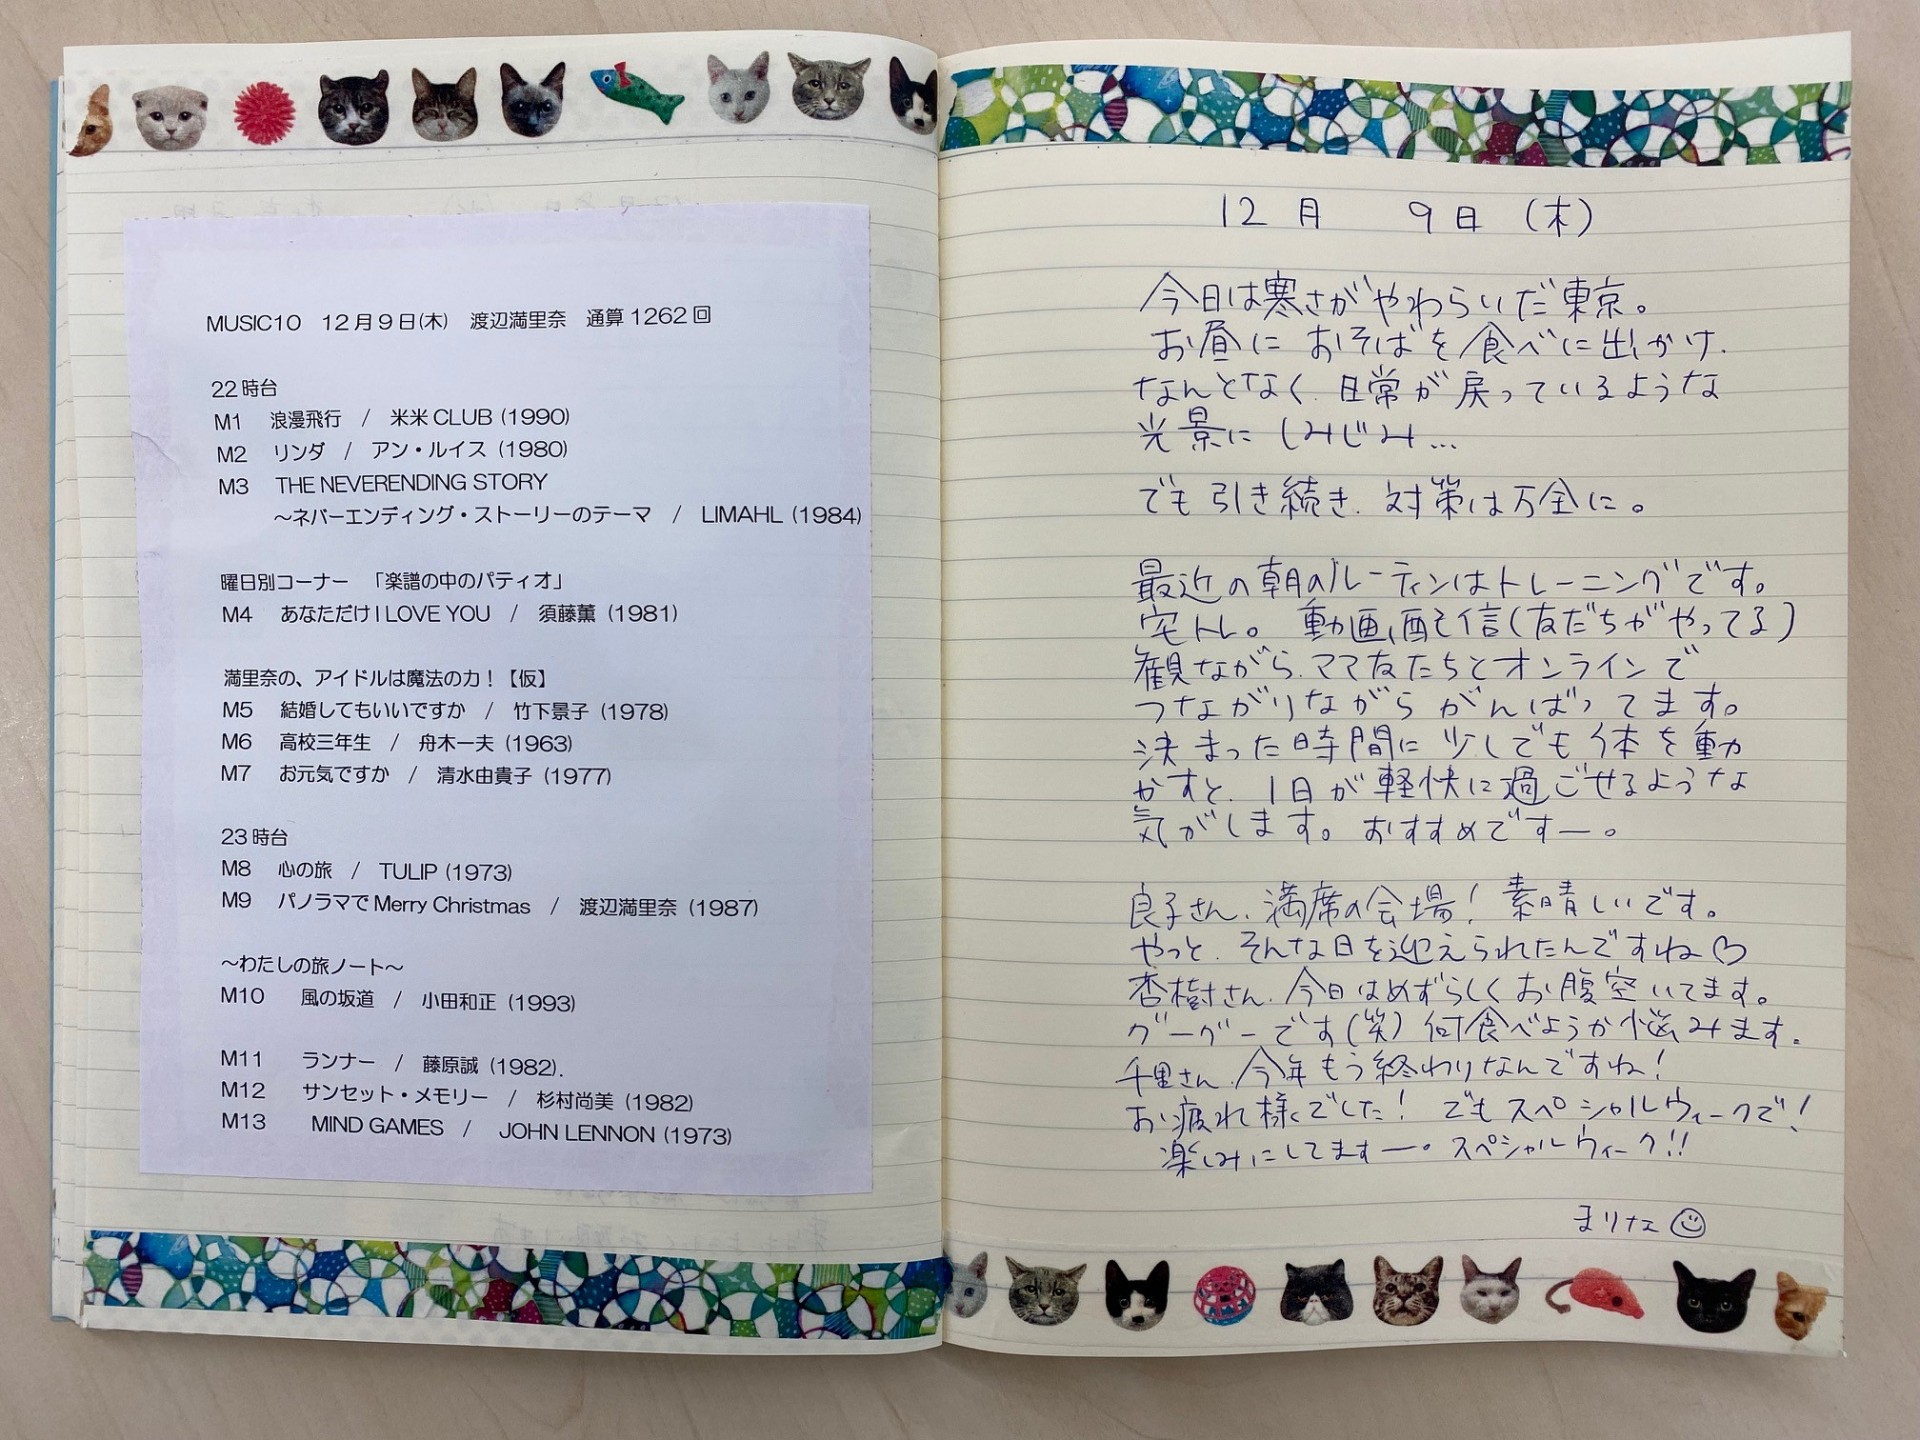 MUSIC10　12月9日(木)　渡辺満里奈　通算1262回
22時台
M1　浪漫飛行　/　米米CLUB (1990)
M2　リンダ　/　アン・ルイス (1980)
M3　THE NEVERENDING STORY
～ネバーエンディング・ストーリーのテーマ　/　LIMAHL (1984)
曜日別コーナー　「楽譜の中のパティオ」
M4　あなただけI LOVE YOU　/　須藤薫 (1981)
満里奈の、アイドルは魔法の力！【仮】
M5　結婚してもいいですか　/　竹下景子 (1978)
M6　高校三年生　/　舟木一夫 (1963)
M7　お元気ですか　/　清水由貴子 (1977)
23時台
M8　心の旅　/　TULIP (1973)
M9　パノラマでMerry Christmas　/　渡辺満里奈 (1987)
～わたしの旅ノート～
M10　風の坂道　/　小田和正 (1993)
M11　ランナー　/　藤原誠 (1982).
M12　サンセット・メモリー　/　杉村尚美 (1982)
M13　MIND GAMES　/　JOHN LENNON (1973)
12月　9日（木）
今日は寒さがやわらいだ東京。
お昼に おそばを食べに出かけ、
なんとなく、日常が戻っているような
光景に しみじみ…
でも引き続き、対策は万全に。
最近の朝のルーティンはトレーニングです。
宅トレ。 動画配信(友だちがやってる)
観ながら、ママ友たちとオンラインで
つながりながら がんばってます。
決まった時間に 少しでも体を動
かすと、1日が軽快に過ごせるような
気がします。おすすめですー。
良子さん、満席の会場！ 素晴しいです。
やっと、そんな日を迎えられたんですね♡
杏樹さん、今日はめずらしくお腹空いてます。
グーグーです(笑) 何食べようか悩みます。
千里さん、今年もう終わりなんですね！
お疲れ様でした！ でもスペシャルウィークで！
楽しみにしてますー。スペシャルウィーク!!
まりな☺